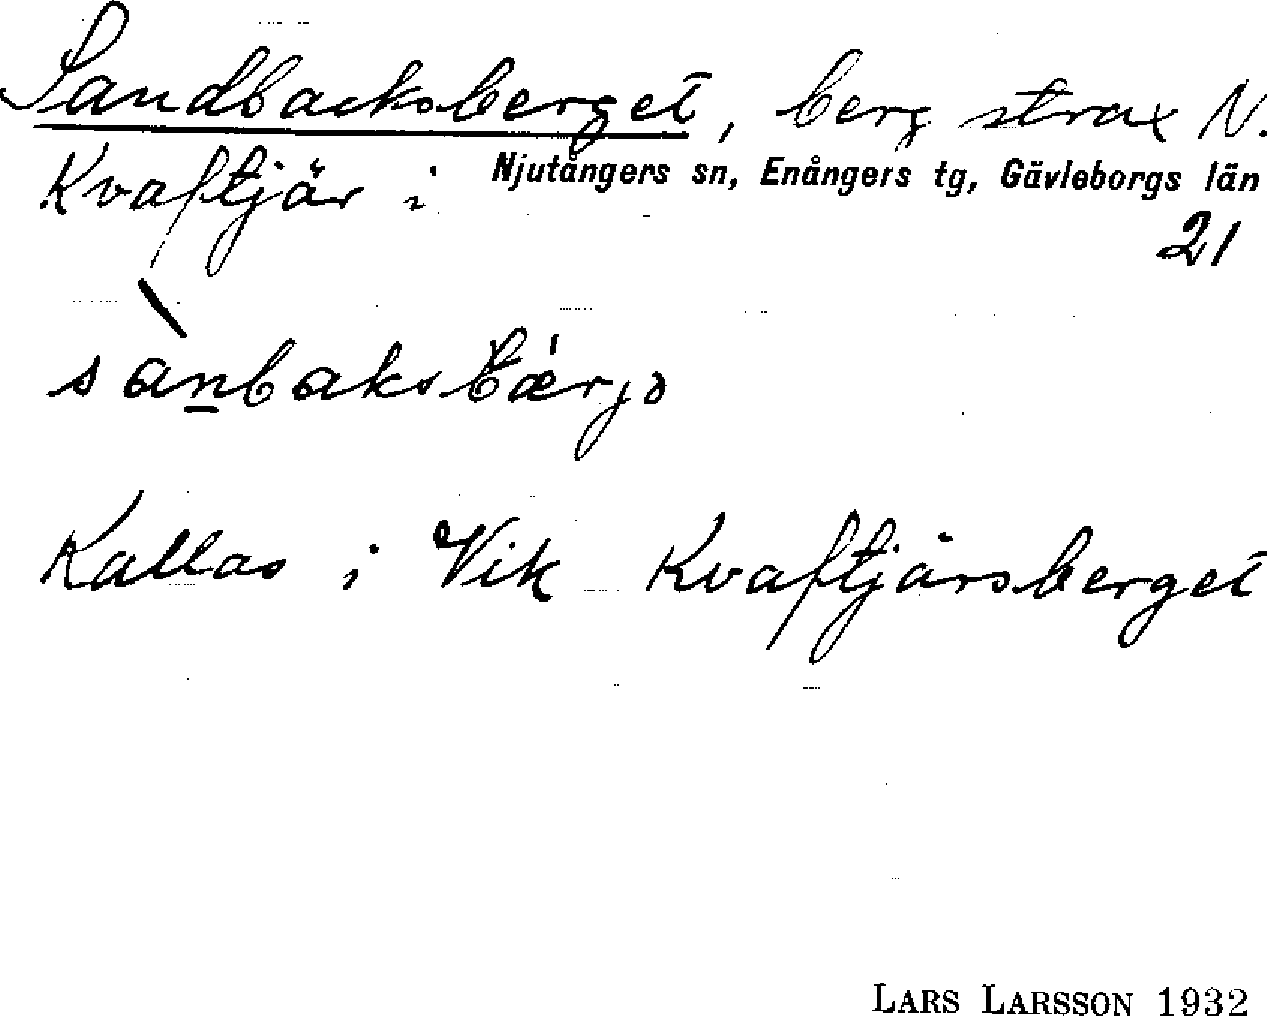 Sandbacksberget, berg strax N.
Kvaftjär i Njutångers sn, Enångers tg, Gävleborgs län
21
sànbaksbǽrjə
Kallas i Vik Kvaftjärsberget
LARS LARSSON 1932